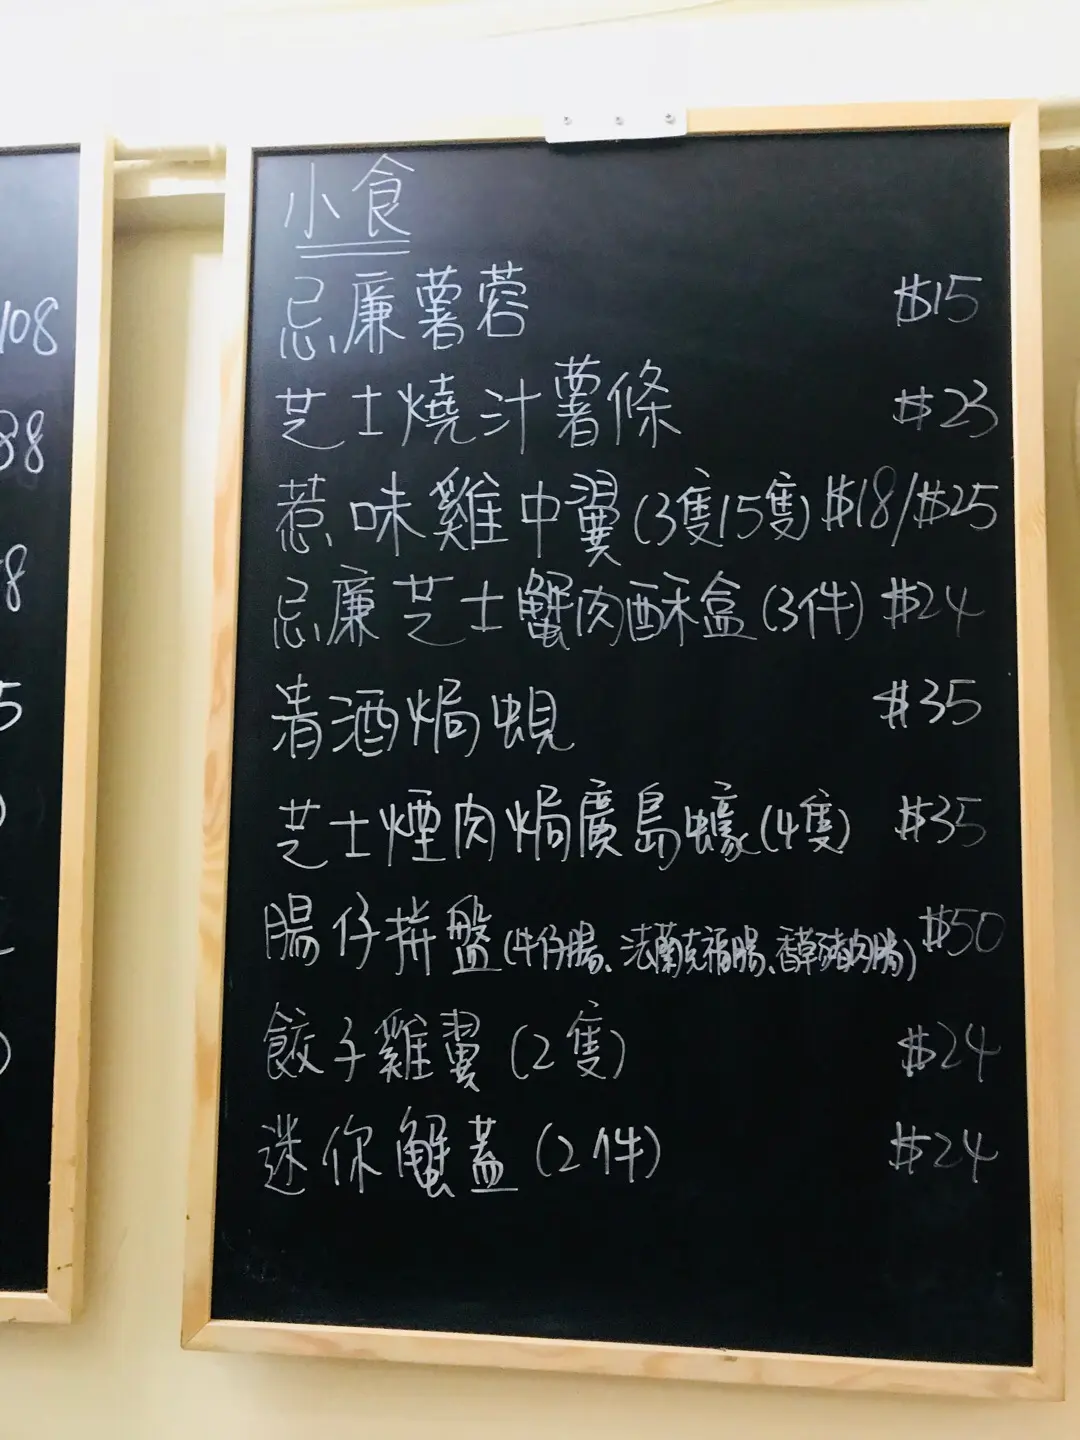 小食
忌廉薯蓉 $15
芝士燒汁薯條 $23
惹味雞中翼(3隻/5隻) $18/$25
忌廉芝士蟹肉酥盒(3件) $24
清酒焗蜆 $35
芝士煙肉焗廣島蠔(4隻) $35
腸仔拼盤(牛仔腸、法蘭克福腸、香草豬肉腸) $50
餃子雞翼(2隻) $24
迷你蟹蓋(2件) $24
108
88
8
5